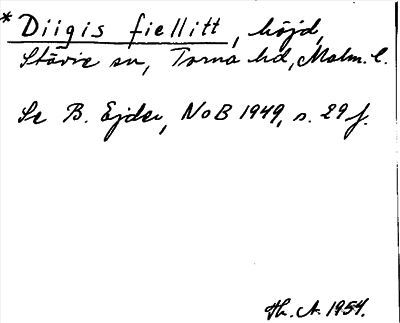 * Diigis fiellitt, höjd,
Stävie sn, Torna hd, Malm. l.
Se B. Ejder, NoB 1949, s. 29 f.
Th. A. 1954.